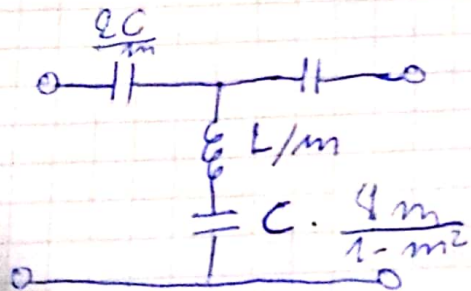 2C/m
L/m
C · 4m/1-m²